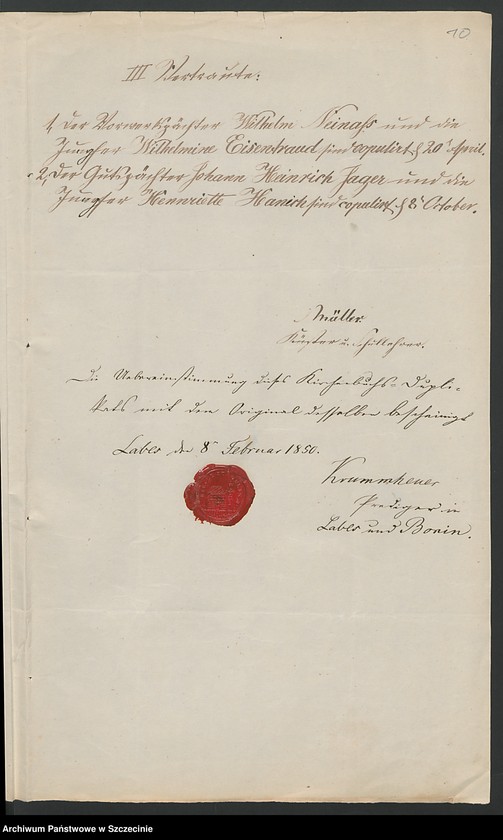 10
III Vertraute:
1, Der Vorwerkspächter Wilhelm Neinass und die
Jungfer Wilhelmine Eisentraud sind copulirt d 20t April.
2, Der Gutspächter Johann Heinrich Jager und die
Jungfer Hennriette Hanich sind copulirt d 8t October.
Müller
Küster u. Schullehrer.
Die Uebereinstimmung dieses Kirchenbuchs-Dupli-
kats mit dem Original desselben bescheinigt
Labes den 8t Februar 1850.
Krummheuer
Prediger in
Labes und Bonin.
Archiwum Państwowe w Szczecinie